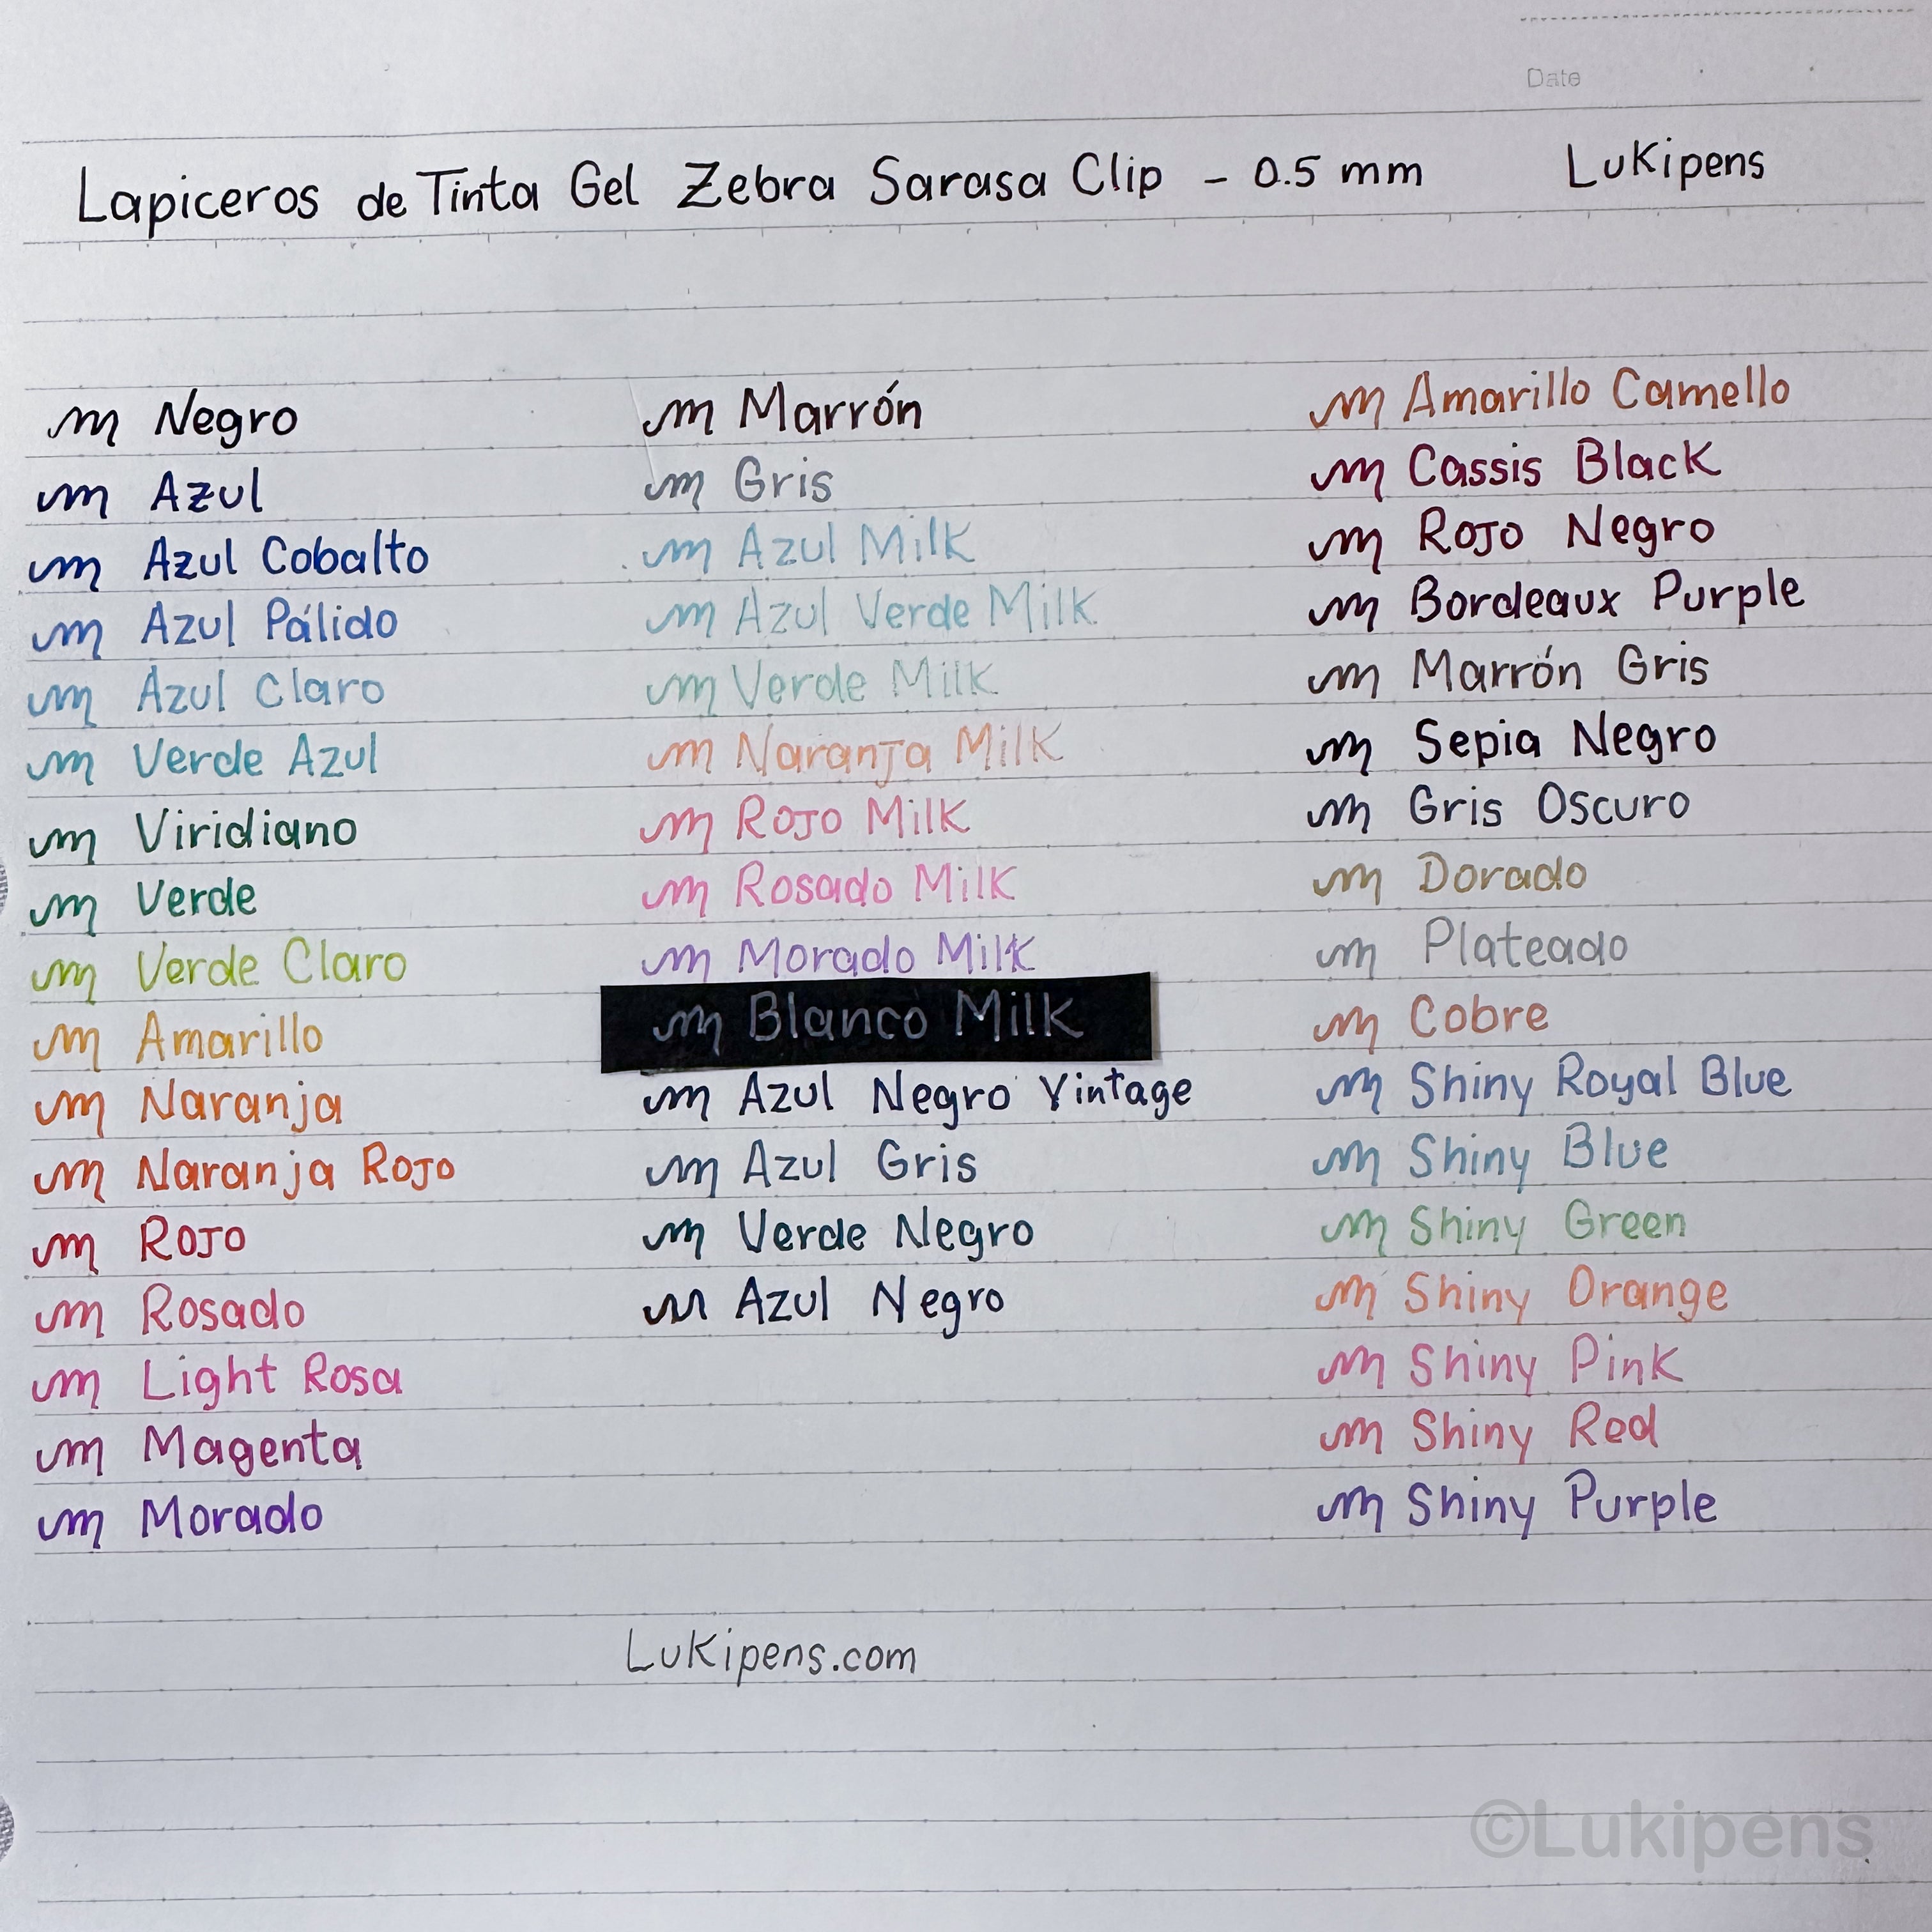 Date
Lapiceros de Tinta Gel Zebra Sarasa Clip - 0.5 mm Lukipens
Negro
Azul
Azul Cobalto
Azul Pálido
Azul Claro
Verde Azul
Viridiano
Verde
Verde Claro
Amarillo
Naranja
Naranja Rojo
Rojo
Rosado
Light Rosa
Magenta
Morado
Marrón
Gris
Azul Milk
Azul Verde Milk
Verde Milk
Naranja Milk
Rojo Milk
Rosado Milk
Morado Milk
Blanco Milk
Azul Negro Vintage
Azul Gris
Verde Negro
Azul Negro
Amarillo Camello
Cassis Black
Rojo Negro
Bordeaux Purple
Marrón Gris
Sepia Negro
Gris Oscuro
Dorado
Plateado
Cobre
Shiny Royal Blue
Shiny Blue
Shiny Green
Shiny Orange
Shiny Pink
Shiny Red
Shiny Purple
Lukipens.com
©Lukipens